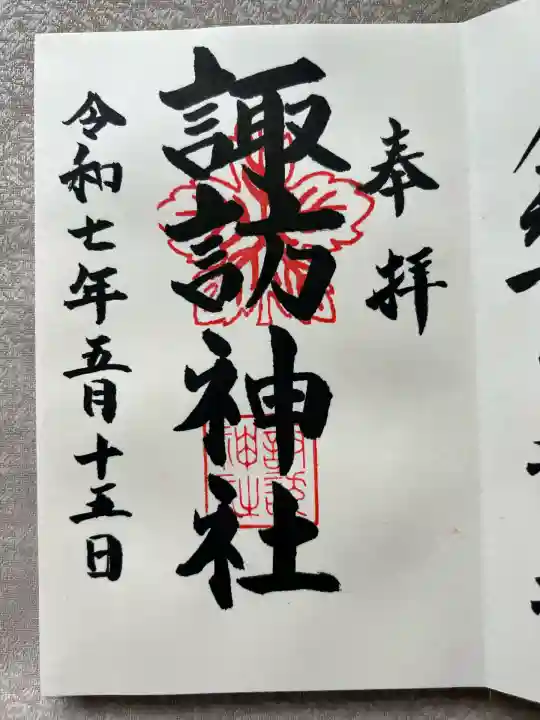 奉拝
諏訪神社
諏訪神社
令和七年五月十五日